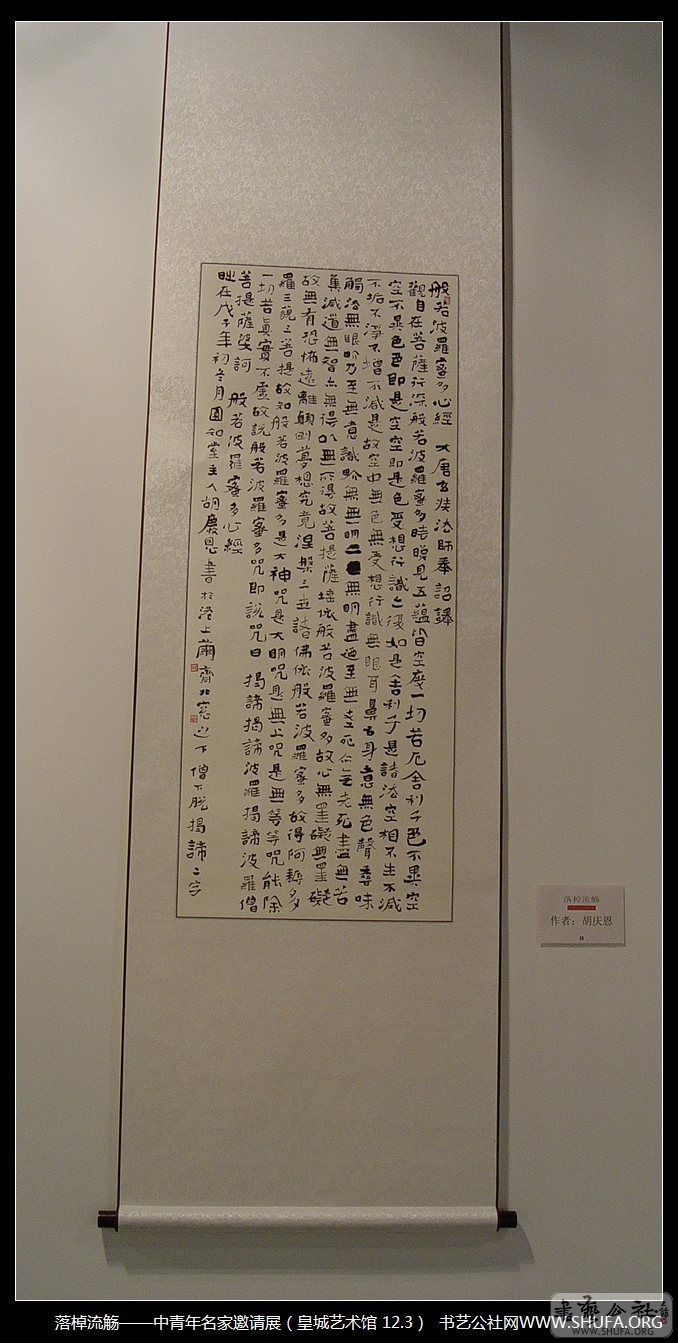 般若波羅蜜多心經 大唐玄奘法師奉詔譯
觀自在菩薩行深般若波羅蜜多時照見五蘊皆空度一切苦厄舍利子色不異空
空不異色色即是空空即是色受想行識亦復如是舍利子是諸法空相不生不滅
不垢不淨不增不減是故空中無色無受想行識無眼耳鼻舌身意無色聲香味
觸法無眼界乃至無意識界無無明亦無明盡迺至無老死亦無老死盡無苦
集滅道無智亦無得以無所得故菩提薩埵依般若波羅蜜多故心無罣礙無罣礙
故無有恐怖遠離顛倒夢想究竟涅槃三世諸佛依般若波羅蜜多故得阿耨多
羅三藐三菩提故知般若波羅蜜多是大神咒是大明咒是無上咒是無等等咒能除
一切苦真實不虛故說般若波羅蜜多咒即說咒曰 揭諦揭諦波羅揭諦波羅僧
菩提薩婆訶 般若波羅蜜多心經
時在戊子年初冬月圓知堂主人胡慶恩書於港上齋北窗之下僧下脫揭諦二字
落棹流觞
作者：胡庆恩
書藝公社
WWW.SHUFA.ORG
落棹流觞——中青年名家邀请展（皇城艺术馆 12.3） 书艺公社网WWW.SHUFA.ORG